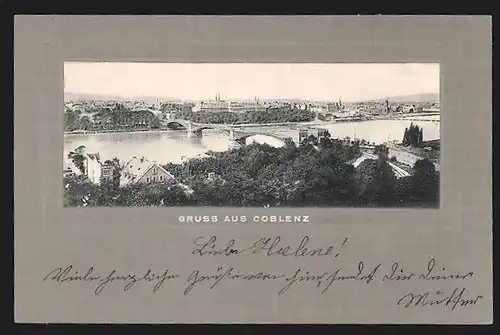 GRUSS AUS COBLENZ
Liebe Helene!
Viele herzliche Grüße von hier, sendet Dir Deine
Mutter